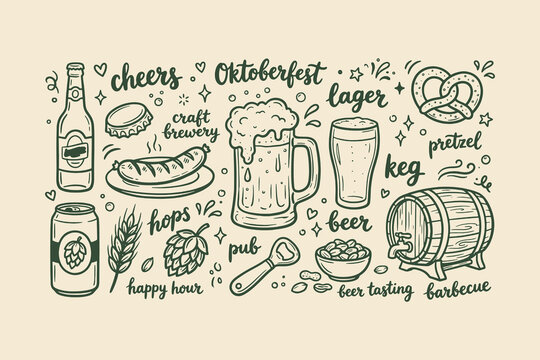 cheers
Oktoberfest
lager
craft
brewery
pretzel
keg
hops
beer
pub
happy hour
beer tasting
barbecue